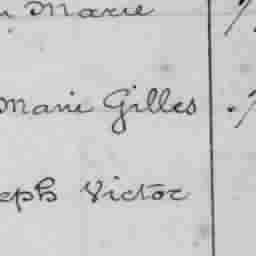 Marie
Marie Gilles
eph Victor